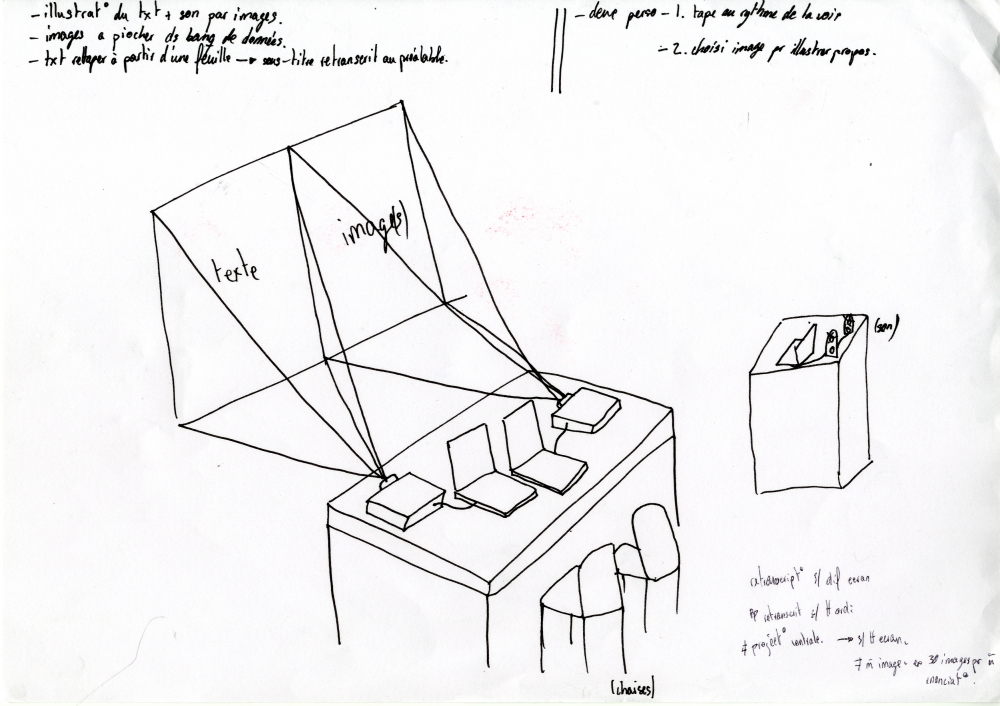 - illustrat° du txt + son par images.
- images a piocher ds banq de données.
- txt retaper à partir d'une feuille → sous-titre retranscrit au préalable.
- deux perso - 1. tape au rythme de la voix
- 2. choisi image pr illustrer propos.
texte
image(s)
(son)
(chaises)
retranscript° s/ dif ecran
retranscrit s/ ordi
project° centrale. → s/ ecran.
image. 30 images pr